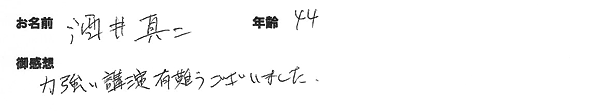 お名前 酒井真二 年齢 44
御感想
力強い講演有難うございました.